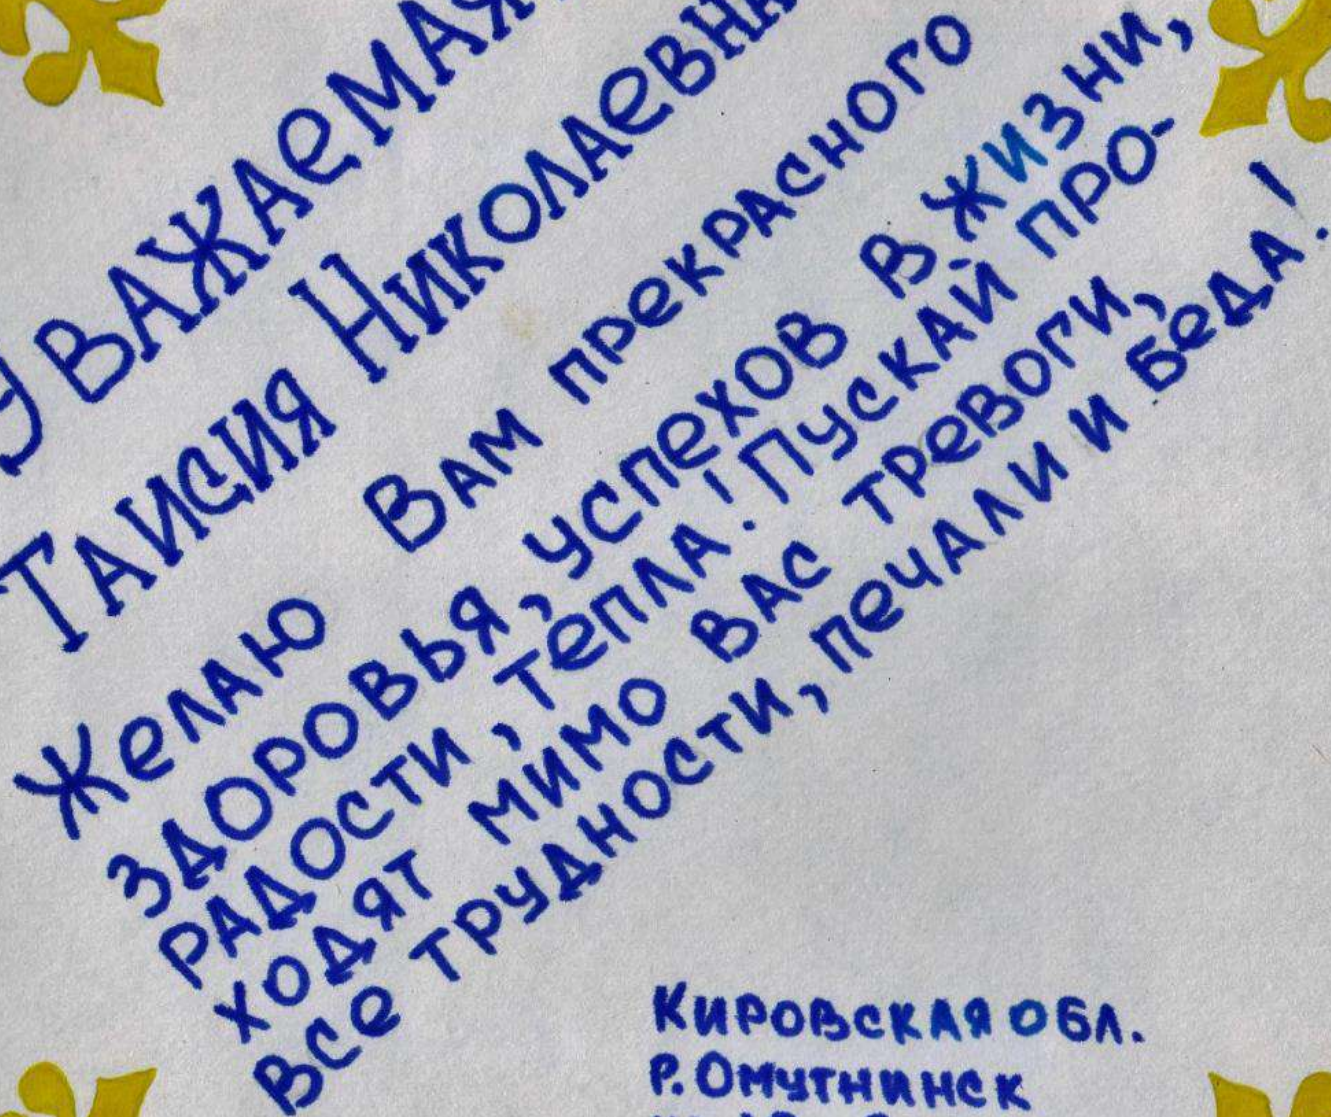 Уважаемая
Таисия Николаевна
Желаю Вам прекрасного
здоровья, успехов в жизни,
радости, тепла! Пускай про-
ходят мимо Вас тревоги,
все трудности, печали и беда!
Кировская обл.
р. Омутнинск